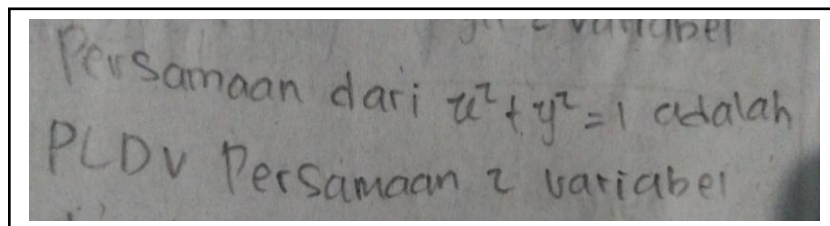 2 variabel
Persamaan dari x² + y² = 1 adalah
PLDV Persamaan 2 variabel